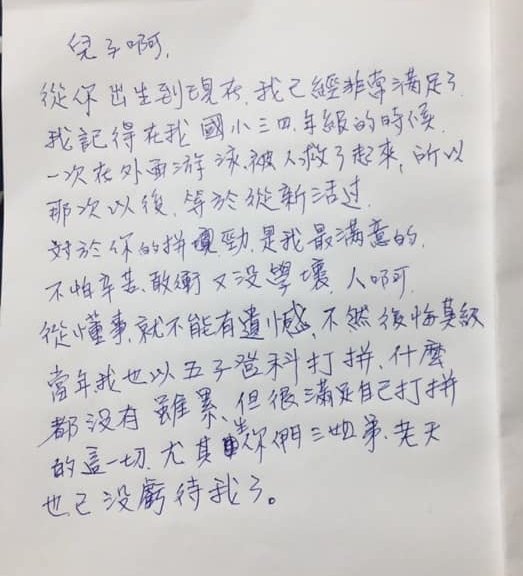 兒子啊,
從你出生到現在,我已經非常滿足了.
我記得在我國小三四.年級的時候.
一次在外面游泳.被人救了起來,所以
那次以後.等於從新活过.
対於你的拼勁.是我最滿意的.
不怕辛苦、敢衝又没學壞.人啊.
從懂事.就不能有遺憾.不然後悔莫及
當年我也以五子登科打拼.什麼
都没有雖累、但很滿足自己打拼
的這一切.尤其生你們三姐弟.老天
也已没虧待我了。